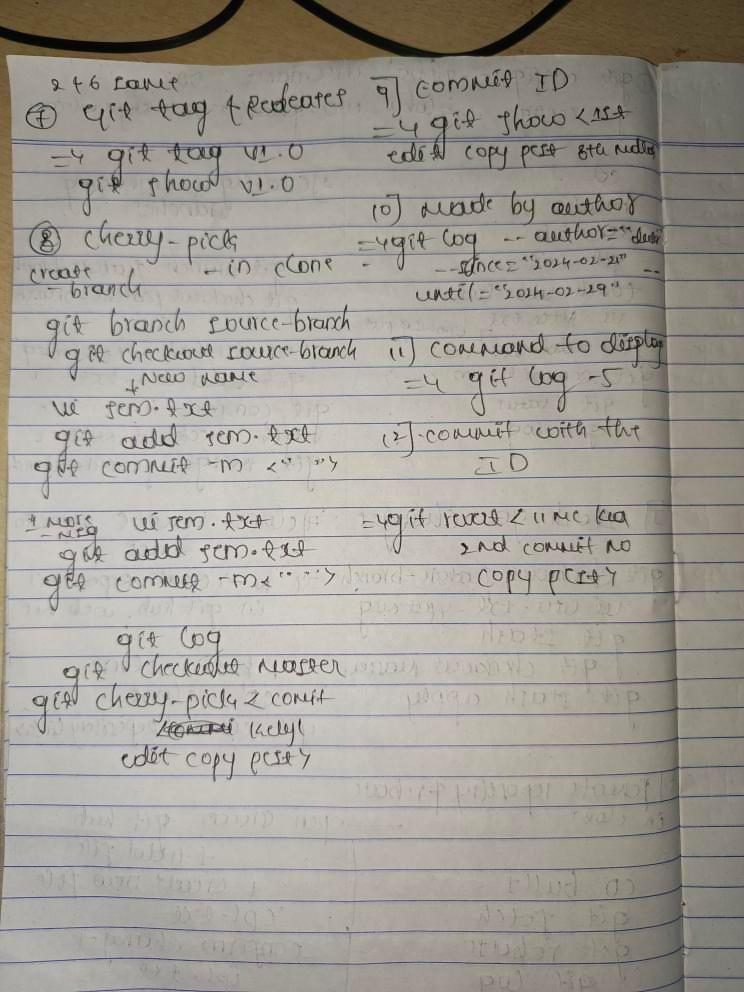 2 + 6 same
7 git tag + Releases
=> git tag v1.0
git show v1.0
8 cherry-pick
create - in clone
- branch
git branch source-branch
git checkout source-branch
+ New name
vi sem.txt
git add sem.txt
git commit -m <" ">
+ more vi sem.txt
- msg
git add sem.txt
git commit -m <" ">
git log
git checkout master
git cherry-pick < comit
edit copy past >
9] commit ID
=> git show < 1st
edit copy past 8th
10] made by author
=> git log -- author="
--since="2024-02-21" --
until="2024-02-29"
11] command to display
=> git log -5
12] commit with the
ID
=> git revert < 11
2nd commit no
copy past >